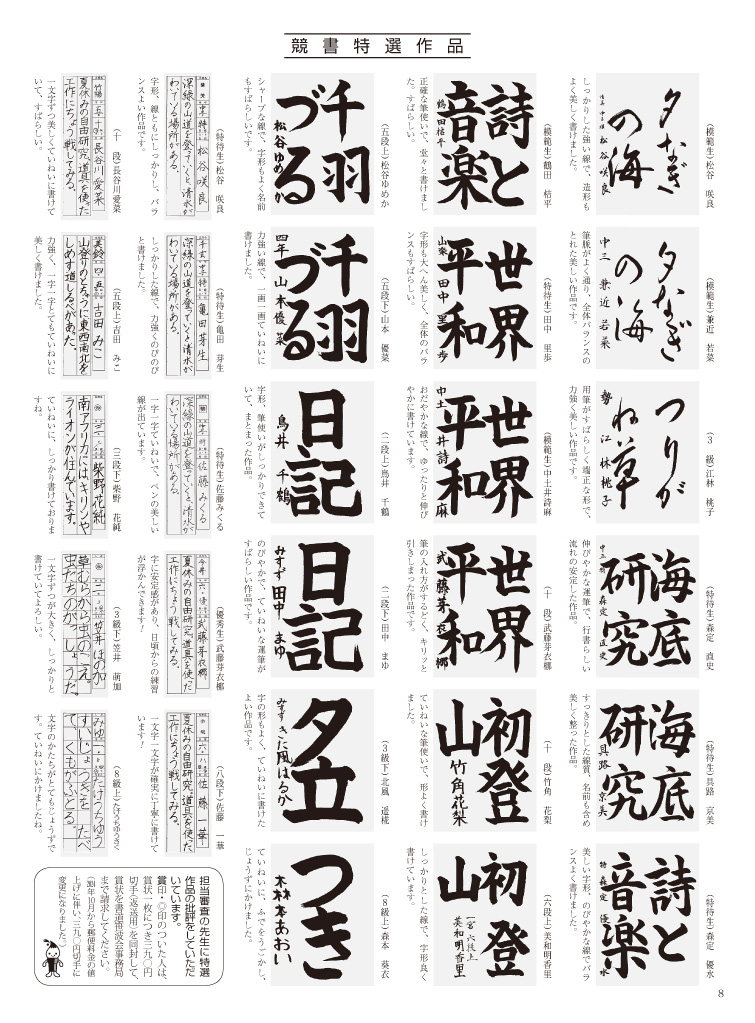 競書特選作品
夕なぎ
の海
松谷咲良
(模範生)松谷 咲良
しっかりした強い線で、造形も
よく美しく書けました。
夕なぎ
の海
中三 兼近若菜
(模範生)兼近 若菜
筆脈がよく通り、全体バランスの
とれた美しい作品です。
つりが
ね草
江林桃子
(3 級)江林 桃子
用筆がすばらしく端正な形で、
力強く美しい作品です。
海底
研究
森定直史
(特待生)森定 直史
伸びやかな運筆で、行書らしい
流れの安定した作品。
海底
研究
具路京美
(特待生)具路 京美
すっきりとした線質、名前も含め
美しく整った作品。
詩と
音楽
森定優水
(特待生)森定 優水
美しい字形、のびやかな線でバラ
ンスよく書けました。
詩と
音楽
鶴田桔平
(模範生)鶴田 桔平
正確な筆使いで、堂々と書けまし
た。すばらしい。
世界
平和
田中里歩
(特待生)田中 里歩
字形も大へん美しく、全体のバラ
ンスもすばらしい。
世界
平和
中土井詩麻
(模範生)中土井詩麻
おだやかな線で、ゆったりと伸び
やかに書けています。
世界
平和
武藤芽衣椰
(十 段)武藤芽衣椰
筆の入れ方がするどく、キリッと
引きしまった作品です。
初登
山
竹角花梨
(十 段)竹角 花梨
ていねいな筆使いで、形よく書け
ました。
初登
山
美和明香里
(六段上)美和明香里
しっかりとした線で、字形良く
書けています。
千羽
づる
松谷ゆめか
(五段上)松谷ゆめか
シャープな線で、字形もよく名前
もすばらしいです。
千羽
づる
四年 山本優菜
(五段下)山本 優菜
力強い線で、一画一画ていねいに
書けました。
日記
鳥井千鶴
(二段上)鳥井 千鶴
字形、筆使いがしっかりできて
いて、まとまった作品。
日記
みすず 田中まゆ
(二段下)田中 まゆ
のびやかで、ていねいな運筆が
すばらしい作品です。
夕立
みすず きた風はるか
(3級下)北風 遥椛
字の形もよく、ていねいに書けた
よい作品です。
つき
森本あおい
(8級上)森本 葵衣
ていねいに、ふでをうごかし、
じょうずにかけました。
松谷咲良
深緑の山道を登っていくと清水が
わいている場所がある。
(特待生)松谷 咲良
字形、線ともにしっかりし、バラ
ンスよい作品です。
亀田芽生
深緑の山道を登っていくと清水が
わいている場所がある。
(特待生)亀田 芽生
しっかりした線で、力強くのびのび
と書けました。
佐藤みくる
深緑の山道を登っていくと清水が
わいている場所がある。
(特待生)佐藤みくる
一字一字ていねいで、ペンの美しい
線が出ています。
武藤芽衣椰
夏休みの自由研究、道具を使った
工作にちょう戦してみる。
(優秀生)武藤芽衣椰
字に安定感があり、日頃からの練習
が浮かんできます!
佐藤一華
夏休みの自由研究、道具を使った
工作にちょう戦してみる。
(八段下)佐藤 一華
一文字一文字が確実に丁寧に書けて
います!
長谷川愛菜
夏休みの自由研究、道具を使った
工作にちょう戦してみる。
(十 段)長谷川愛菜
一文字ずつ美しくていねいに書けて
いて、すばらしい。
美鈴 四・五 吉田みこ
山登りのとちゅうに東西南北を
しめす道しるべがあった。
(五段上)吉田 みこ
力強く、一字一字とてもていねいに
美しく書けました。
柴野花純
南アフリカにはキリンや
ライオンが住んでいます。
(三段下)柴野 花純
ていねいに、しっかり書けておりま
すね。
笠井ほのか
草むらから虫のこえ。
虫たちのがっしょうだ。
(3級下)笠井 萌加
一文字ずつが大きく、しっかりと
書けていてよろしい。
たけうちゆう
すいじょうきを たべ
て くもがふとる。
(8級上)たけうちゆうさく
文字のかたちがとてもじょうずで
す。ていねいにかけましたね。
担当審査の先生に特選
作品の批評をしていただ
いています。
賞印・○印のついた人は、
賞状一枚につき三九〇円
切手(返送用)を同封して、
賞状を書道笹波会事務局
まで請求してください。
(2024年10月から郵便料金の値
上げに伴い、三九〇円切手に
変更になりました。)
8